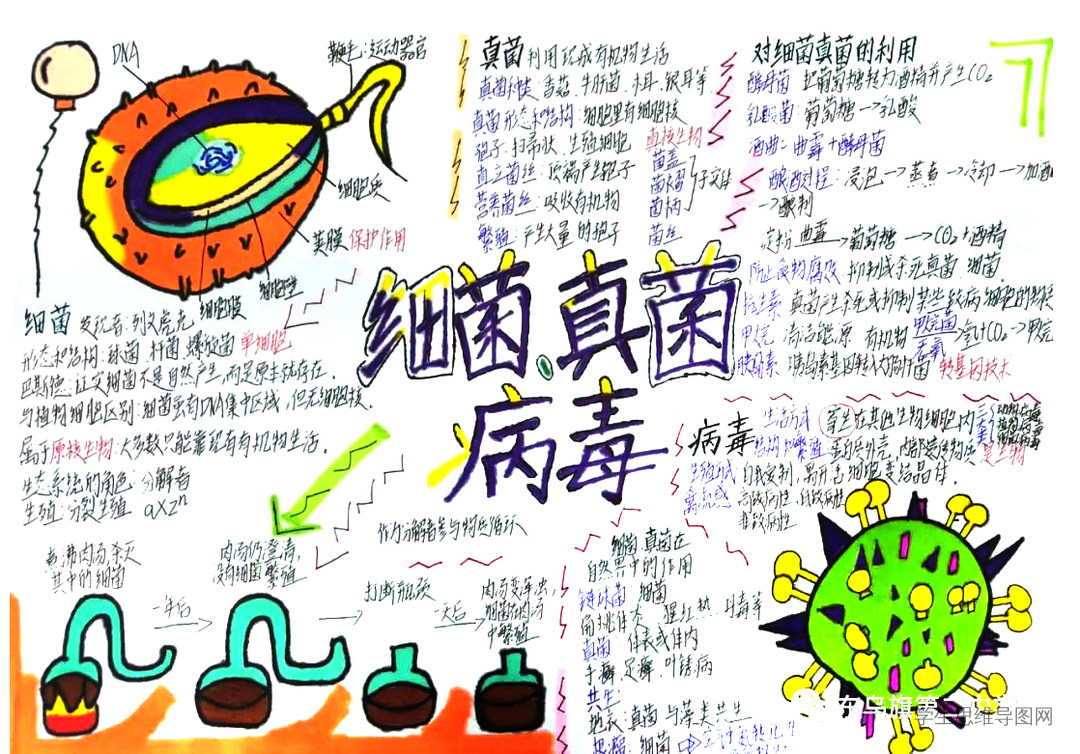 DNA
鞭毛:运动器官
细胞质
荚膜 保护作用
细胞壁
细胞膜
细菌 发现者:列文虎克
形态和结构:球菌 杆菌 螺旋菌 单细胞
巴斯德:证实细菌不是自然产生,而是原本就存在.
与植物细胞区别:细菌虽有DNA集中区域,但无细胞核.
属于原核生物:大多数只能靠现有有机物生活.
生态系统的角色:分解者
生殖:分裂生殖 a×2ⁿ
真菌 利用现成有机物生活
真菌种类:香菇、牛肝菌、木耳、银耳等
真菌形态和结构:细胞里有细胞核
孢子:扫帚状、生殖细胞 真核生物
直立菌丝:顶端产生孢子
营养菌丝:吸收有机物
繁殖:产生大量的孢子
菌盖
菌褶
菌柄
子实体
菌丝
对细菌真菌的利用
酵母菌 把葡萄糖转为酒精并产生CO₂
乳酸菌 葡萄糖→乳酸
酒曲:曲霉+酵母菌
酿酒过程:浸泡→蒸煮→冷却→加酒
→酿制
淀粉 曲霉→葡萄糖→CO₂+酒精
防止食物腐败 抑制或杀死真菌、细菌
抗生素 真菌产生杀死或抑制某些致病细菌的物质
甲烷 清洁能源 有机物 甲烷菌→氢+CO₂→甲烷
胰岛素 转基因技术
细菌.真菌
病毒
病毒 生活方式 寄生在其他生物细胞内
结构和繁殖 蛋白质外壳,内部遗传物质
自我复制,离开活细胞变结晶体.
煮沸肉汤,杀灭
其中的细菌
一年后
肉汤仍澄清,
没有细菌繁殖
打断瓶颈
一天后
肉汤变浑浊,
细菌在肉汤
中繁殖
作为分解者参与物质循环
细菌.真菌在
自然界中的作用
链球菌 细菌
扁桃体炎、猩红热、丹毒等
真菌 体表或体内
手癣、足癣、叶锈病
共生:
地衣:真菌与藻类共生
学生思维导图网